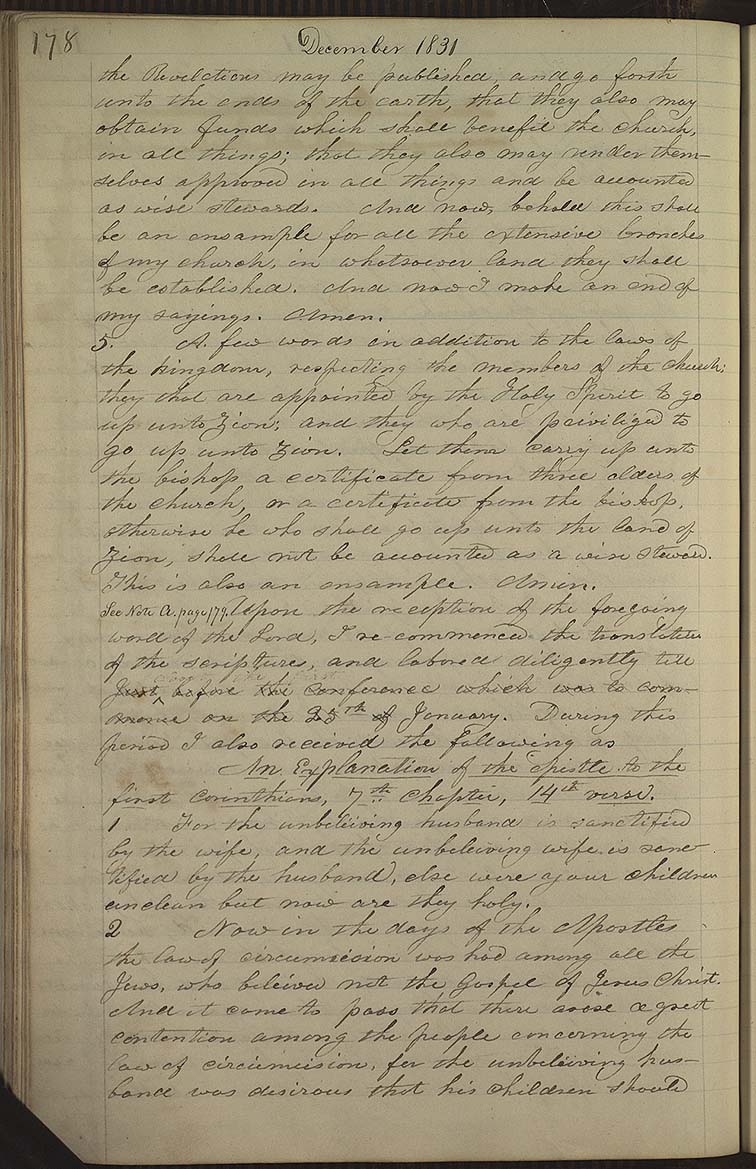 178
December 1831
the Revelations may be published, and go forth
unto the ends of the earth, that they also may
obtain funds which shall benefit the church,
in all things; that they also may render them-
selves approved in all things and be accounted
as wise stewards. And now, behold this shall
be an ensample for all the extensive branches
of my church, in whatsoever land they shall
be established. And now I make an end of
my sayings. Amen.
5. A few words in addition to the laws of
the kingdom, respecting the members of the church;
they that are appointed by the Holy Spirit to go
up unto Zion; and they who are priviliged to
go up unto Zion. Let them carry up unto
the bishop a certificate from three elders of
the church, or a certificate from the bishop,
otherwise he who shall go up unto the land of
Zion, shall not be accounted as a wise steward.
This is also an ensample. Amen.
See Note A. page 179. Upon the reception of the foregoing
word of the Lord, I re-commenced the translation
of the scriptures, and labored diligently till
Just before the conference which was to com-
mence on the 25th of January. During this
period I also received the following as
An Explanation of the epistle to the
first corinthians, 7th chapter, 14th verse.
1 For the unbeleiving husband is sanctified
by the wife, and the unbeleiving wife is sanc
tified by the husband, else were your children
unclean but now are they holy.
2 Now in the days of the Apostles
the law of circumcision was had among all the
Jews, who beleived not the Gospel of Jesus Christ.
And it came to pass that there arose a great
contention among the people concerning the
law of circumcision, for the unbeleiving hus-
band was desirous that his children should